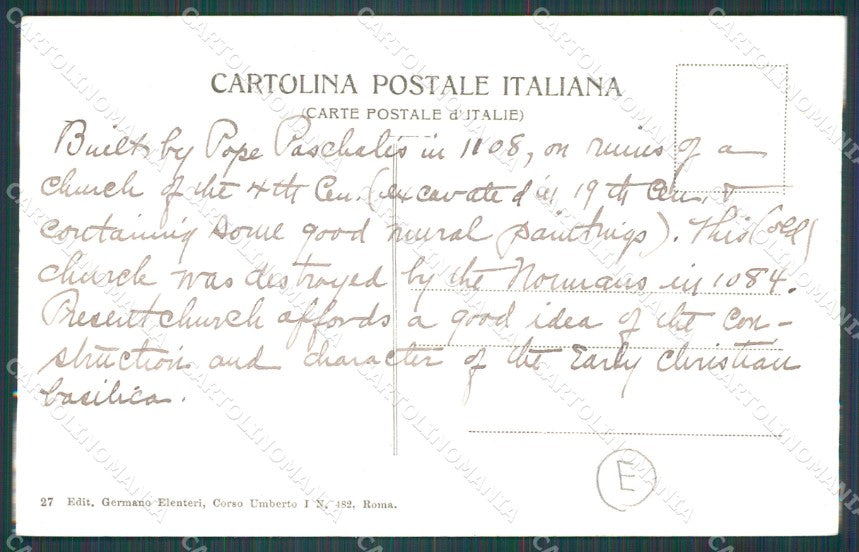 CARTOLINA POSTALE ITALIANA
(CARTE POSTALE d'ITALIE)
Built by Pope Paschalis in 1108, on ruins of a
church of the 4th Cen. (excavated in 19th Cen. &
containing some good mural paintings). This (old)
church was destroyed by the Normans in 1084.
Present church affords a good idea of the con-
struction and character of the Early Christian
basilica.
E
27 Edit. Germano Elenteri, Corso Umberto I N. 482, Roma.
CARTOLINOMANIA